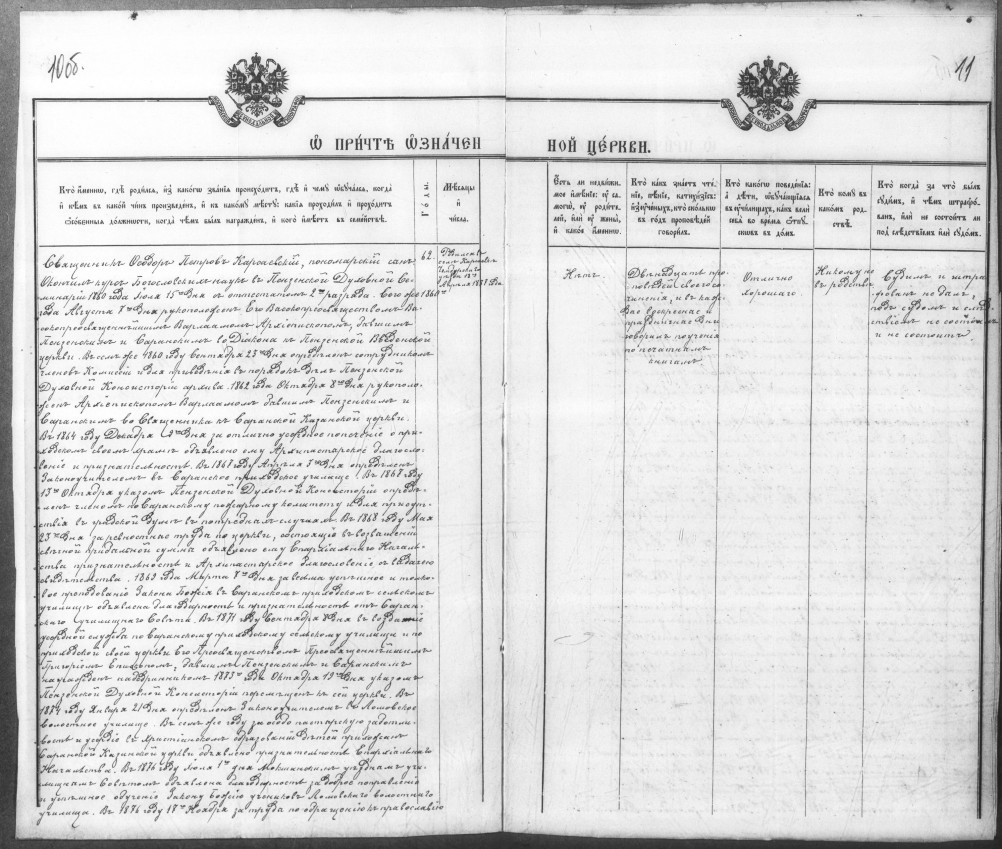 10 об.
11
Ѡ ПРИ́ЧТѢ ѠЗНА́ЧЕН
НОЙ ЦЕ́РКВИ.
Кто и́менно, гдѣ роди́лся, и́зъ какогѡ зва́нїя происходитъ, гдѣ и́ чему ѡбуча́лся, когда
и́ кѣмъ въ какой чинъ произведенъ, и́ къ какому мѣсту: какїя проходилъ и́ проходитъ
ѡсобенныя должности, когда чѣмъ былъ награжденъ, и́ кого и́мѣетъ въ семействѣ.
Годы.
Мѣсяцы
и́
числа.
Е́сть ли недвижи-
мое и́мѣнїе: оу са-
могѡ, оу родите-
лей, и́ли оу жены,
и́ какое и́менно.
Кто какъ знаетъ чте-
нїе, пѣнїе, катихизїсъ:
и́зъ оученыхъ, кто сколькѡ
въ годъ проповѣдей
говорилъ.
Кто какогѡ поведенїя:
а дѣти, ѡбучающїяся
въ оучилищахъ, какъ вели
себя во время ѿпу-
сковъ въ домъ.
Кто кому въ
какомъ род-
ствѣ.
Кто когда за что былъ
судимъ, и́ чѣмъ штрафо-
ванъ, и́ли не состоитъ ли
подъ слѣдствїемъ и́ли судомъ.
Священникъ Ѳеодоръ Петровъ Карсаевскій, пономарскій сынъ
Окончилъ курсъ Богословскихъ наукъ въ Пензенской Духовной Се-
минаріи 1860 года Іюля 15го дня съ аттестатомъ 2го разряда. Сего же 1860
года Августа 7го дня рукоположенъ Его Высокопреосвященствомъ Вы-
сокопреосвященнѣйшимъ Варлаамомъ Архіепископомъ, бывшимъ
Пензенскимъ и Саранскимъ во Діакона къ Пензенской Введенской
церкви. Въ семъ же 1860 году Сентября 23го дня опредѣленъ сотрудникомъ
членовъ Комисіи для приведенія въ порядокъ дѣлъ Пензенской
Духовной Консисторіи архива. 1862 года Октября 8го дня рукополо-
женъ Архіепископомъ Варлаамомъ бывшимъ Пензенскимъ и
Саранскимъ во Священника къ Саранской Казанской церкви.
Въ 1864 году Декабря дня за отлично усердное попеченіе о при-
ходскомъ своемъ храмѣ объявлено ему Архипастырское благосло-
веніе и признательность. Въ 1867 году Апрѣля 3го дня опредѣленъ
Законоучителемъ въ Саранское приходское училище. Въ 1867 году
13го Октября указомъ Пензенской Духовной Консисторіи опредѣ-
ленъ членомъ по Саранскому пожарному комитету и для присут-
ствія въ градской думѣ въ потребныхъ случаяхъ. Въ 1868 году Мая
23го дня за ревностные труды по церкви, состоящіе въ возвышеніи
свѣчной прибыльной суммы объявлено ему Епархіальнаго Началь-
ства признательность и Архипастырское благословеніе
1869 года Марта 7го дня за весьма успѣшное и толко-
вое преподованіе Закона Божія въ Саранскомъ приходскомъ сельскомъ
училищѣ объявлена благодарность и признательность отъ Саран-
скаго училищнаго Совѣта. Въ 1871 году Сентября дня въ воздаяніе
усердной службы по Саранскому приходскому сельскому училищу и по
приходской своей церкви Его Преосвященствомъ Преосвященнѣйшимъ
Григоріемъ Епископомъ, бывшимъ Пензенскимъ и Саранскимъ
награжденъ набедренникомъ. 1873го года Октября 19го дня указомъ
Пензенской Духовной Консисторіи перемѣщенъ къ сей церкви. Въ
1874 году Января 21 дня опредѣленъ Законоучителемъ въ Ломовское
волостное училище. Въ семъ же году за особо пастырскую заботли-
вость и усердіе въ христіанскомъ образованіи дѣтей прихожанъ
Саранской Казанской церкви объявлена признательность Епархіальнаго
Начальства. Въ 1876 году Іюля 1го дня Мокшанскимъ уѣзднымъ учи-
лищнымъ Совѣтомъ объявлена благодарность за доброе направленіе
и успѣшное обученіе Закону Божію учениковъ Ломовскаго волостнаго
училища. Въ 1876 году 17го Ноября за труды по обращенію къ православію
62.
Нѣтъ.
Двѣнадцать про-
повѣдей своего со-
чиненія, и въ каж-
дые воскресные и
праздничные дни
говорилъ поученія
по печатнымъ
книгамъ
Отлично
хорошаго.
Никому не
въ родствѣ
Судимъ и штра-
фованъ не былъ,
подъ судомъ и слѣд-
ствіемъ не состоялъ
и не состоитъ